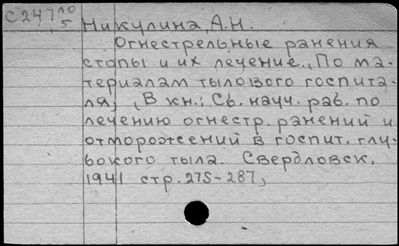 С247 10/5
Никулина, А.Н.
Огнестрельные ранения
стопы и их лечение., По ма-
териалам тылового госпита-
ля, , В кн.: Сб. науч. раб. по
лечению огнестр. ранений и
отморожений в госпит. глу-
бокого тыла. Свердловск,
1941 стр. 275-287,